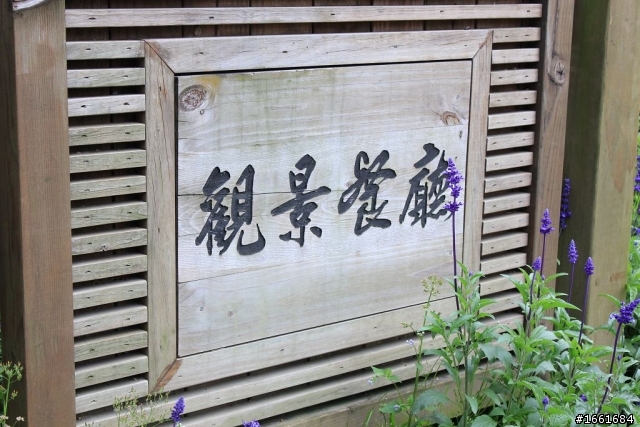 觀景餐廳
#1661684